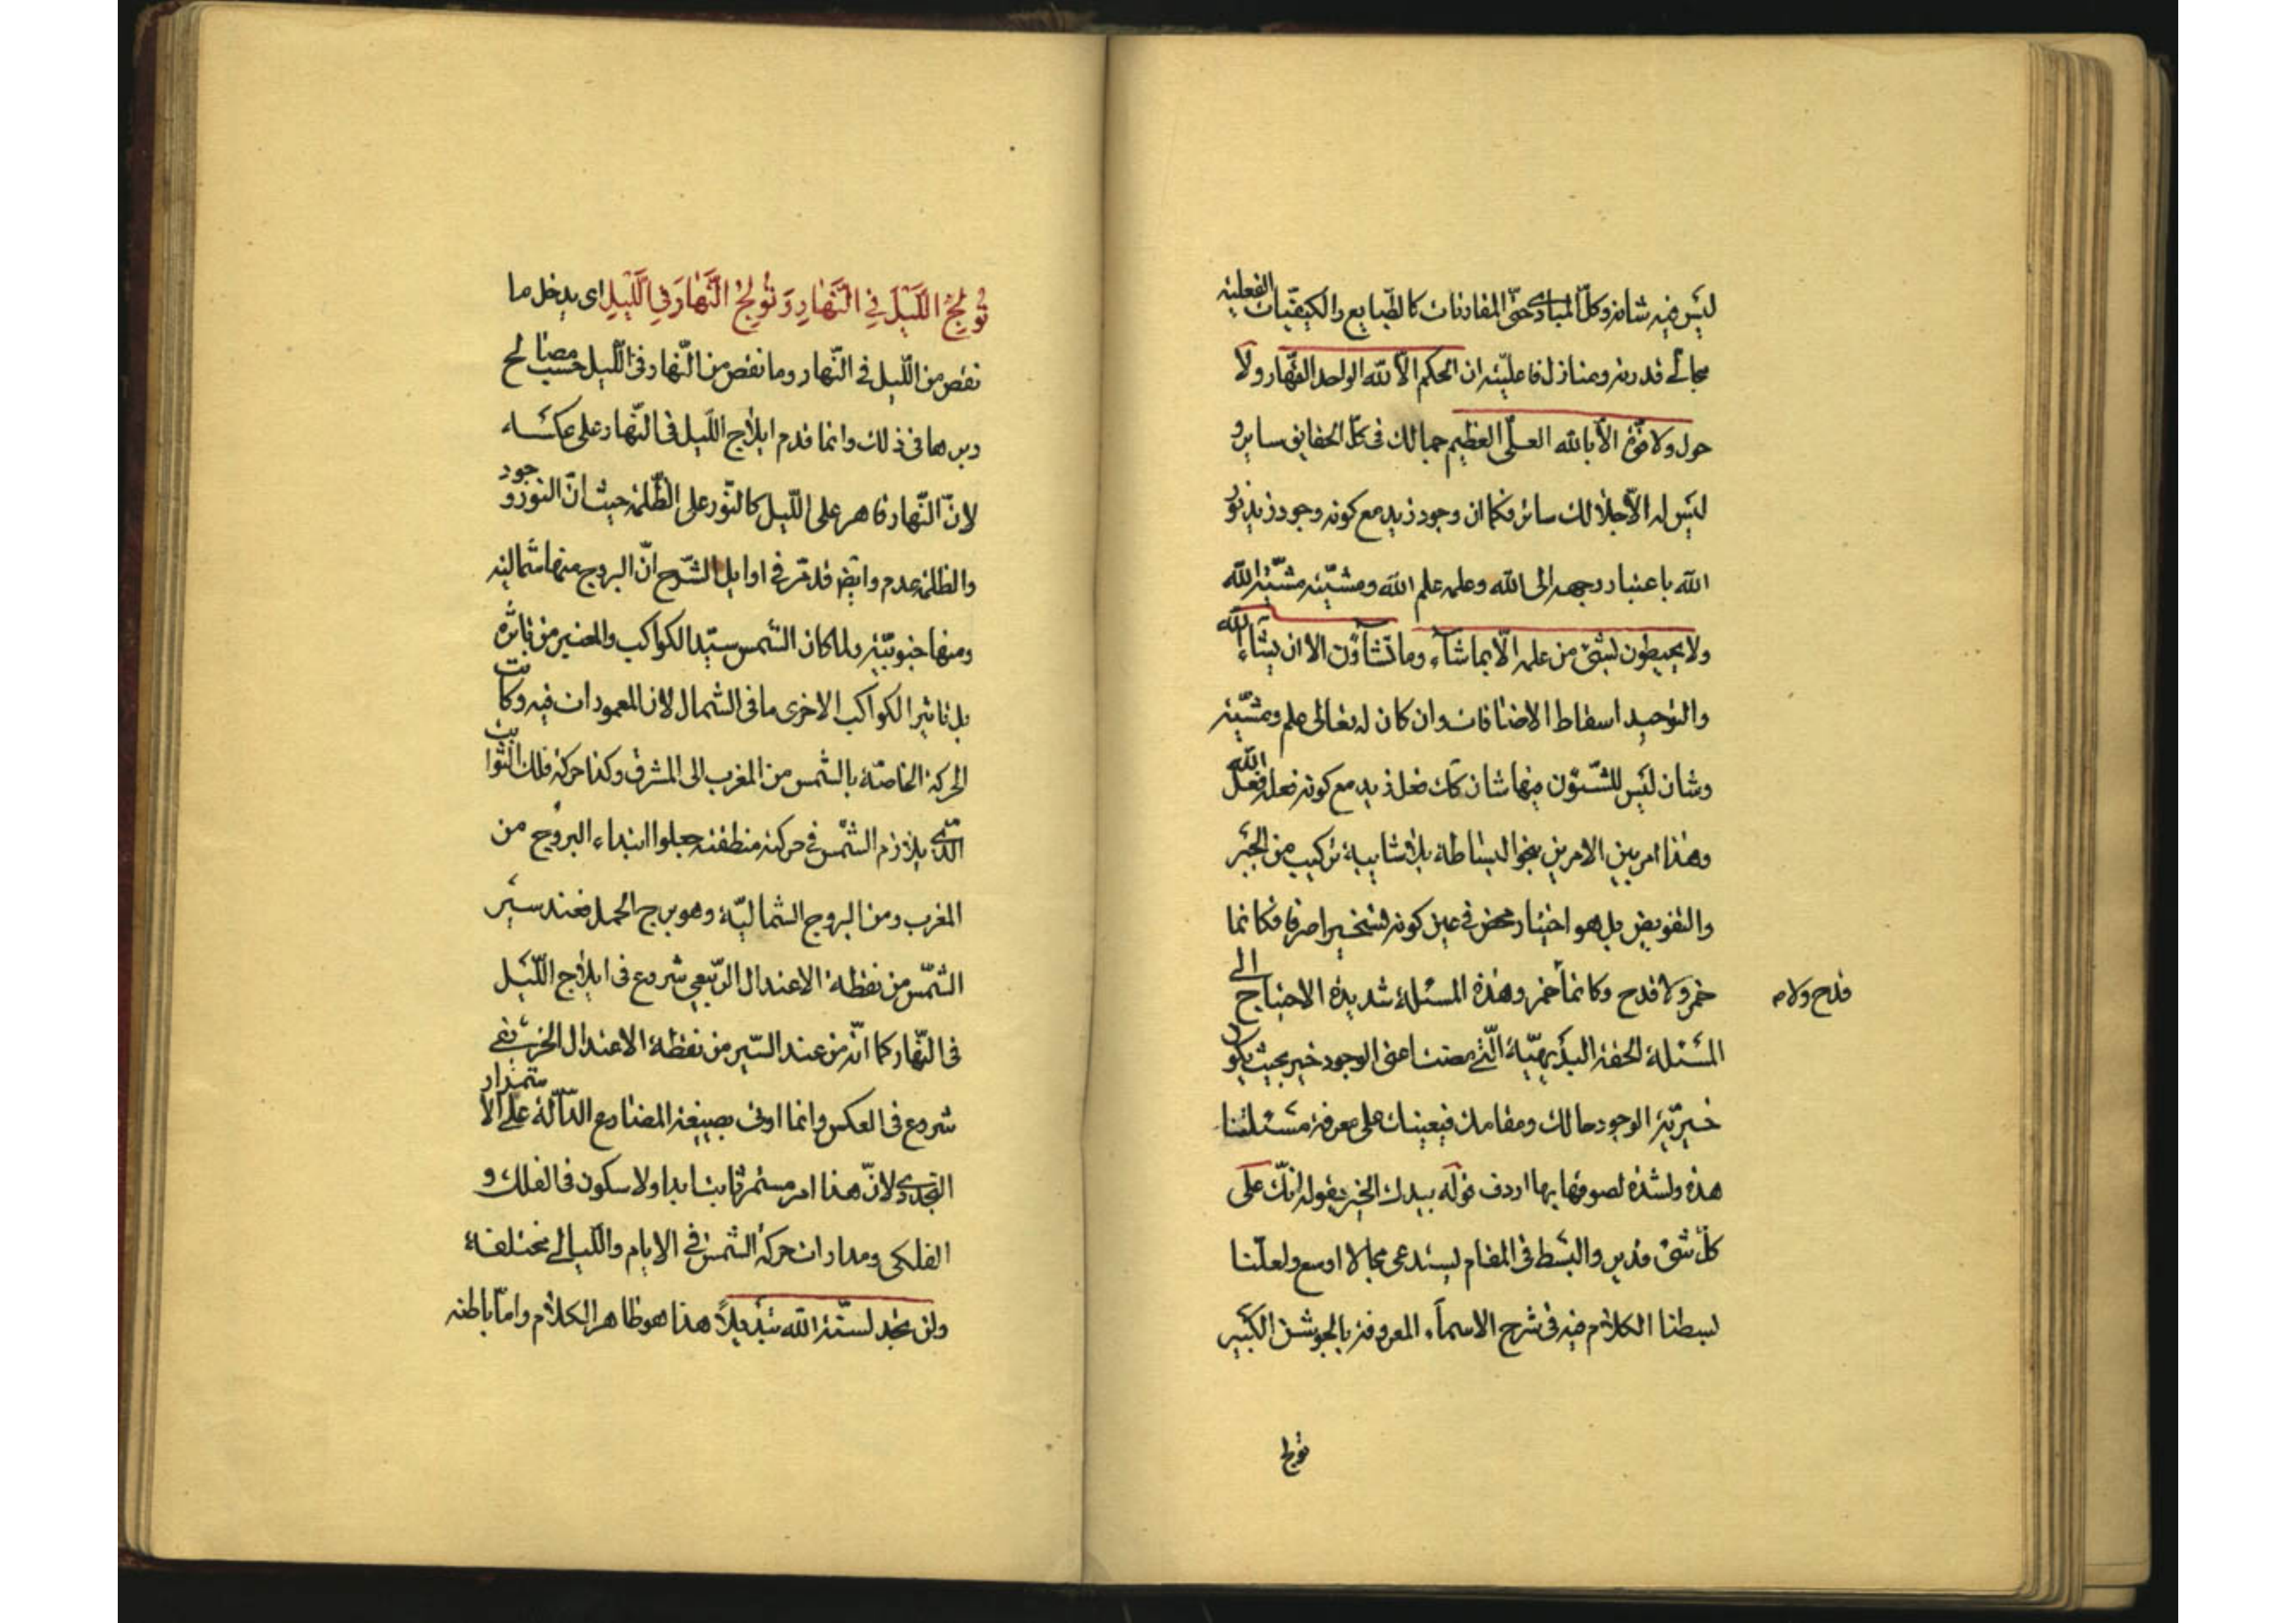 ليس فيه شانه وكلّ المبادى حتّى المقارنات كالطّبايع والكيفيّات الفعلية
مجالى قدرته ومنازل فاعليّته ان الحكم الّا لله الواحد القهّار ولا
حول ولا قوّة الّا بالله العلىّ العظيم جمالك فى كلّ الحقايق ساير و
ليس له الّا جلالك ساتر فكما ان وجود زيد مع كونه وجود زيد نور
الله باعتبار وجهه الى الله وعلمه علم الله ومشيّته مشيّة الله
ولا يحيطون بشئ من علمه الّا بما شاء وما تشاؤن الا ان يشاء الله
والتوحيد اسقاط الاضافات وان كان له تعالى علم ومشيّة
وشان ليس للشّئون فيها شان كك فعل زيد مع كونه فعله فعل الله
وهذا امر بين الامرين بنحو البساطة بلا شايبة تركيب من الجبر
والتفويض بل هو اختيار محض فى عين كونه تسخيرا صرفا فكانما
خمر ولا قدح وكانما خمر وهذه المسئلة شديدة الاحتياج الى
قدح ولا
المسئلة الحقة البديهيّة الّتى مضت اعنى الوجود خير بحيث يكون
خيريّة الوجود حالك ومقامك فيعينك على معرفة مسئلتنا
هذه ولشدة لصوقها بها اردف قوله بيدك الخير بقوله انّك على
كلّ شئ قدير والبسط فى المقام يستدعى مجالا اوسع ولعلّنا
بسطنا الكلام فيه فى شرح الاسماء المعروفة بالجوشن الكبير
تولج
تُولِجُ اللَّيْلَ فِي النَّهَارِ وَتُولِجُ النَّهَارَ فِي اللَّيْلِ اى يدخل ما
نقص من اللّيل فى النّهار وما نقص من النّهار فى اللّيل حسب مصالح
دبرها فى ذلك وانما قدم ايلاج اللّيل فى النّهار على عكسه
لانّ النّهار قاهر على اللّيل كالنّور على الظّلمة حيث انّ النور وجود
والظلمة عدم وايض قد مرّ فى اوايل الشّرح انّ البروج منها شمالية
ومنها جنوبيّة ولما كان الشّمس سيّد الكواكب والمعتبر من تاثره
بل تاثير الكواكب الاخرى ما فى الشمال لان المعمورات فيه وكانت
الحركة الخاصّة بالشّمس من المغرب الى المشرق وكذا حركة فلك الثوابت
الّذى يلازم الشّمس فى حركته منطقته جعلوا ابتداء البروج من
المغرب ومن البروج الشماليّة وهو برج الحمل فعند سير
الشّمس من نقطة الاعتدال الرّبيعى شروع فى ايلاج اللّيل
فى النّهار كما انّه من عند السّير من نقطة الاعتدال الخريفى
شروع فى العكس وانما اوتى بصيغة المضارع الدّالّة على الاستمرار
التجددى لانّ هذا امر مستمر ثابت ابدا ولا سكون فى الفلك و
الفلكى ومدارات حركة الشّمس فى الايام واللّيالى مختلفة
ولن تجد لسنّة الله تبديلاً هذا هو ظاهر الكلام وامّا باطنه